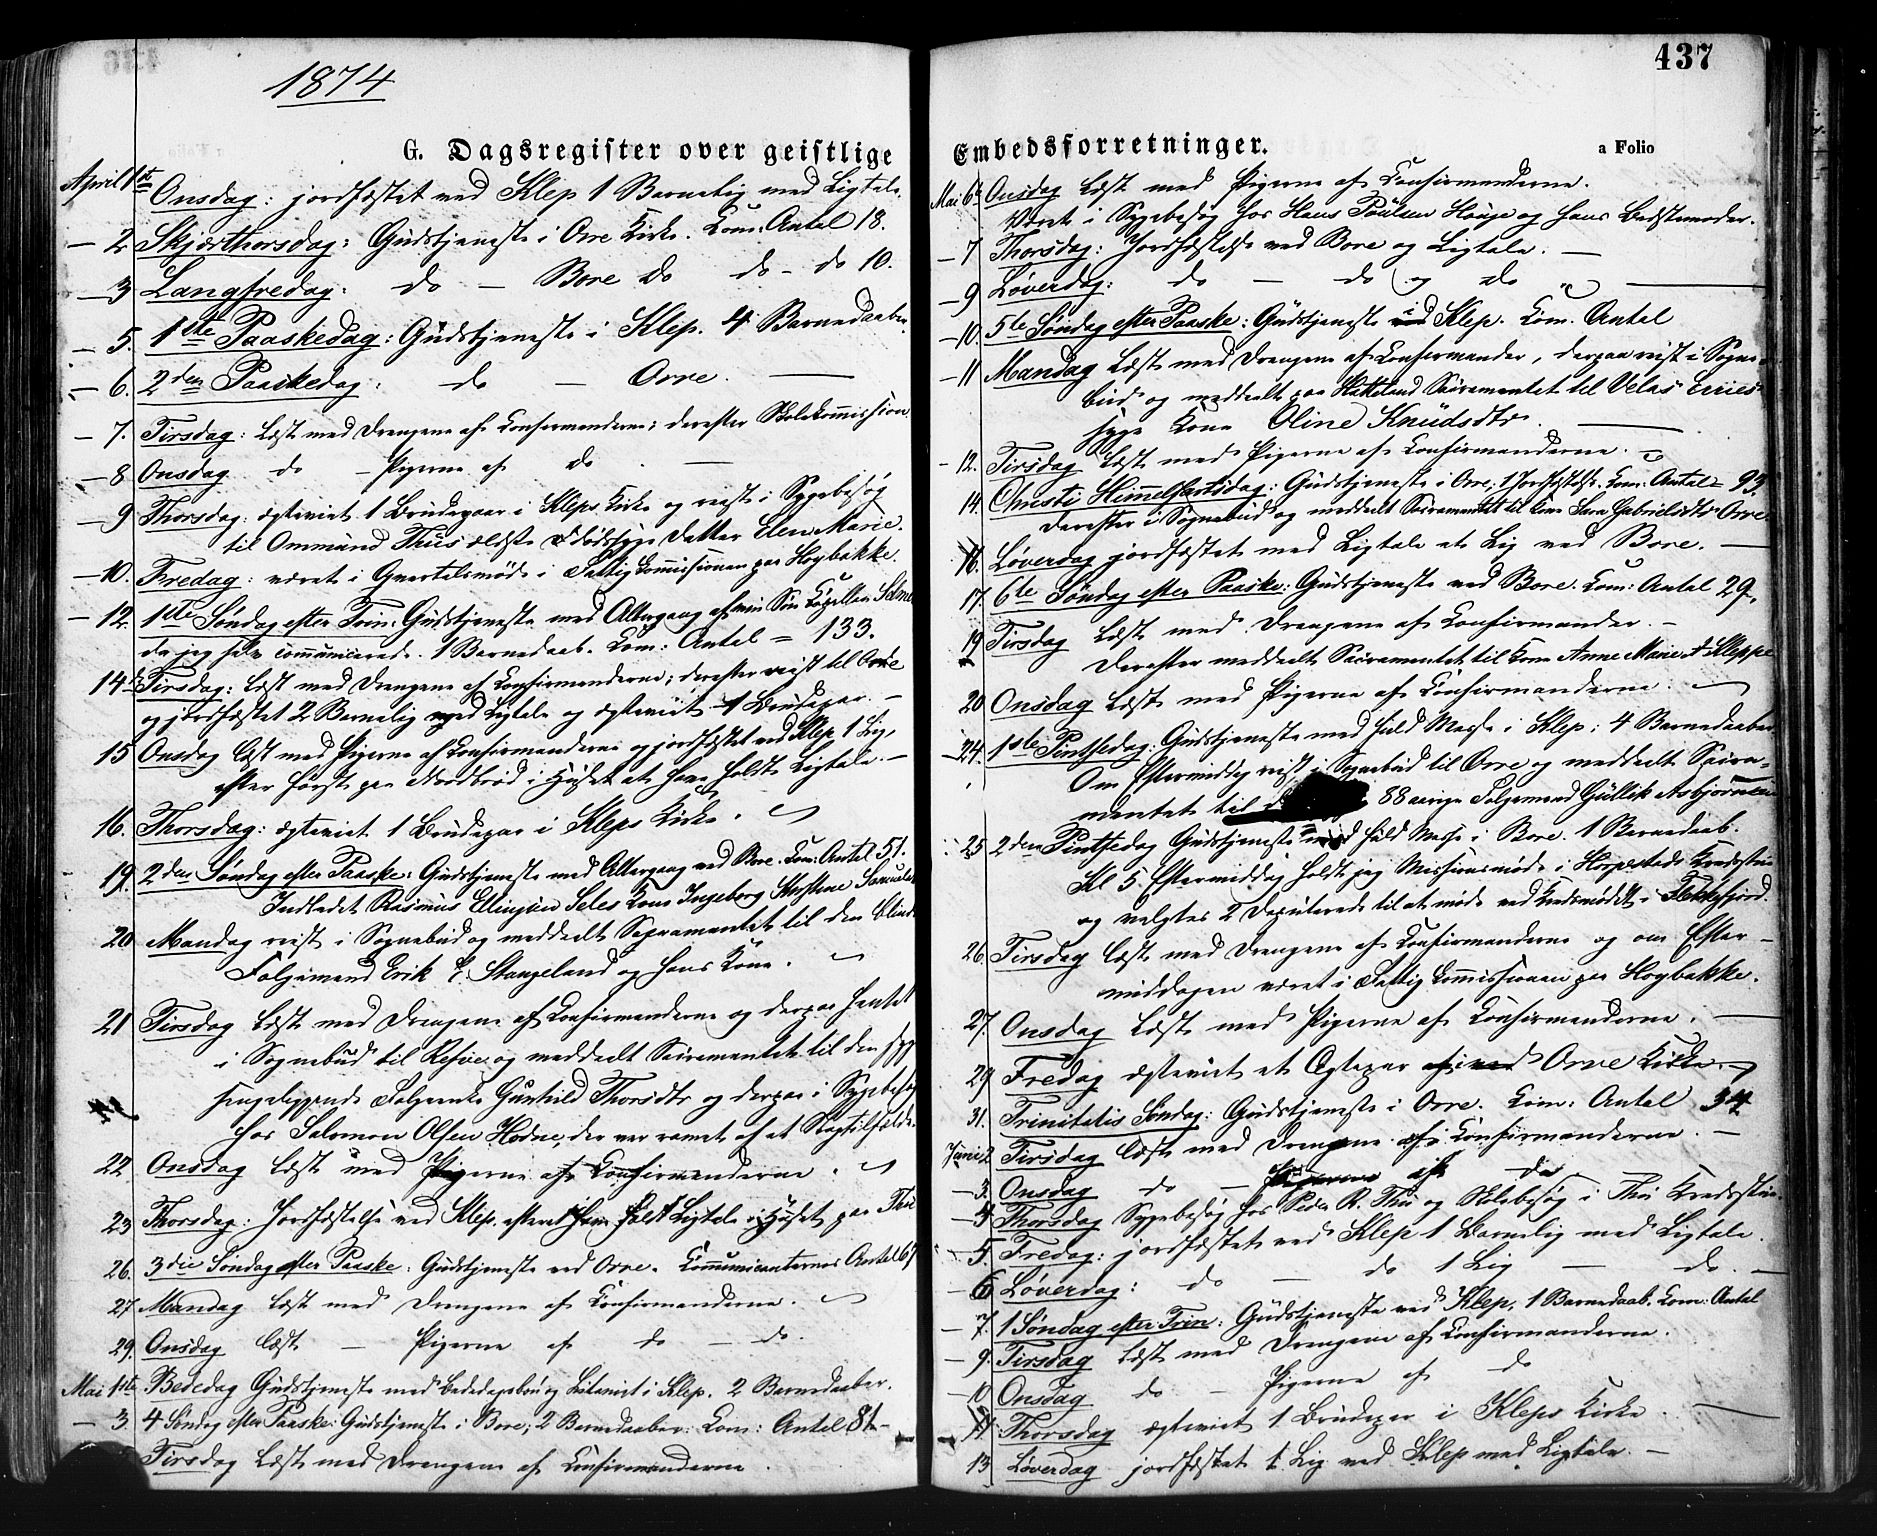 1874
G. Dagsregister over geistlige
April 1ste Onsdag: jordfæstet ved Klep 1 Barnelig med Ligtale.
— 2 Skjærthorsdag: Gudstjeneste i Orre Kirke. Com. Antal 18.
— 3 Langfredag: do — Bore do do — do 10.
— 5. 1ste Paaskedag: Gudstjeneste i Klep. 4 Barnedaaber.
— 6. 2den Paaskedag: do — Orre. —
— 7. Tirsdag: læst med Drengene af Confirmanderne; derefter Skolekommission.
— 8 Onsdag do — Pigerne af do. —
— 9 Thorsdag: ægteviet 1 Brudepaar i Kleps Kirke og reist i Sygebesøg
til Ommund Thus ældste dødssyge Datter Elen Marie.
— 10. Fredag: været i Qvartalsmøde i Fattigkommissionen paa Hogbakke.
— 12. 1ste Søndag efter Gudstjeneste med Altergang af min Søn
da jeg selv communicerede. 1 Barnedaab. Com: Antal = 133.
14d Tirsdag: læst med Drengene af Confirmanderne; derefter reist til Orre
og jordfæstet 2 Barnelig med Ligtale og ægteviet 1 Brudepar. —
15 Onsdag læst med Pigerne af Confirmanderne og jordfæstet ved Klep 1 Lig,
efter først paa Nordbrød i Huset at have holdt Ligtale. —
16. Thorsdag: ægteviet 1 Brudepar i Kleps Kirke.
19. 2den Søndag efter Paaske: Gudstjeneste med Altergang ved Bore. Com: Antal 51.
Indledet Rasmus Ellingsen Seles Kone Ingeborg
20 Mandag reist i Sognebud og meddeelt Sacramentet til den blinde
Folgemand Erik Stangeland og hans Kone.
21 Tirsdag læst med Drengene af Confirmanderne og derpaa hentet
i Sognebud til og meddeelt Sacramentet til den syge
sengeliggende Gunhild Thorsdtr og derpaa i Sygebesøg
hos Salomon Olsen Hodne, der var ramt af et Slagtilfælde.
22 Onsdag læst med Pigerne af Confirmanderne.
23 Thorsdag: Jordfæstelse ved Klep, efterat have holdt Ligtale i Huset paa Thu
26. 3die Søndag efter Paaske: Gudstjeneste ved Orre. Communicanternes Antal 67
27 Mandag læst med Drengene af Confirmanderne.
29. Onsdag læst — Pigerne af do — do.
Mai 1ste Bededag Gudstjeneste med i Klep. 2 Barnedaaber.
— 3 4 Søndag efter Paaske: Gudstjeneste i Bore; 2 Barnedaaber: Com: Antal 81 —
Tirsdag læst med Drengene af Confirmanderne.
437
Embedsforretninger.
a Folio
Mai 6te Onsdag læst med Pigerne af Confirmanderne.
Været i Sygebesøg hos Hans Poulsen Hauge og hans Bedstemoder.
— 7 Thorsdag: Jordfæstelse ved Bore og Ligtale. —
— 9 Løverdag: do — do og do
— 10. 5te Søndag efter Paaske: Gudstjeneste i Klep. Com. Antal
— 11 Mandag læst med Drengene af Confirmander, derpaa reist i Sogne-
bud og meddeelt paa Hatteland Sacramentet til
syge Kone Oline Knudsdtr. —
— 12. Tirsdag læst med Pigerne af Confirmanderne.
14. Christi Himmelfartsdag: Gudstjeneste i Orre; 1 Jordfæstelse. Com: Antal = 93
Derefter i Sognebud og meddeelt Sacramentet til Gabrielsdtr Orre.
16. Løverdag jordfæstet med Ligtale et Lig ved Bore. —
17. 6te Søndag efter Paaske: Gudstjeneste ved Bore. Com: Antal 29.
19 Tirsdag læst med Drengene af Confirmander. —
Derefter meddeelt Sacramentet til Kone Anne Marie Kleppe
20 Onsdag læst med Pigerne af Confirmanderne.
24. 1ste Pintsedag: Gudstjeneste med fuld Messe i Klep: 4 Barnedaaber
Om Eftermiddag reist i Sognebud til Orre og meddeelt Sacra-
mentet til 88 aarige Folgemand Gullik Asbjørnsen
25 2den Pintsedag Gudstjeneste med fuld Messe i Bore. 1 Barnedaab.
Kl 5 Eftermiddag holdt jeg Missionsmøde i Horpestads Kredsskole
og valgtes 2 Deputerede til at møde ved Kredsmødet i Flekkefjord.
26. Tirsdag læst med Drengene af Confirmanderne og om Efter-
middagen været i Fattigkommissionen paa Hogbakke.
27. Onsdag læst med Pigerne af Confirmanderne. —
29 Fredag ægteviet et Ægtepar i Orre Kirke.
31. Trinitatis Søndag: Gudstjeneste i Orre. Com: Antal 34
Juni 2 Tirsdag læst med Drengene af Confirmanderne. —
— 3. Onsdag do — Pigerne af do
— 4 Thorsdag Sygebesøg hos Peder R. Thu og Skolebesøg i Thu Kredsskole.
— 5. Fredag: jordfæstet ved Klep 1 Barnelig med Ligtale.
— 6 Løverdag: do — do 1 Lig — do. —
— 7. 1 Søndag efter Trin: Gudstjeneste ved Klep. 1 Barnedaab. Com: Antal
— 9. Tirsdag læst med Drengene af Confirmanderne.
— 10 Onsdag do — Pigerne af do
11. Thorsdag ægteviet 1 Brudepar i Kleps Kirke. —
13 Løverdag jordfæstet 1 Lig ved Klep med Ligtale. —